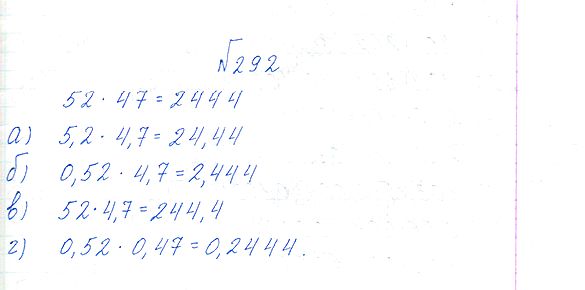 №292
52 · 47 = 2444
а) 5,2 · 4,7 = 24,44
б) 0,52 · 4,7 = 2,444
в) 52 · 4,7 = 244,4
г) 0,52 · 0,47 = 0,2444.